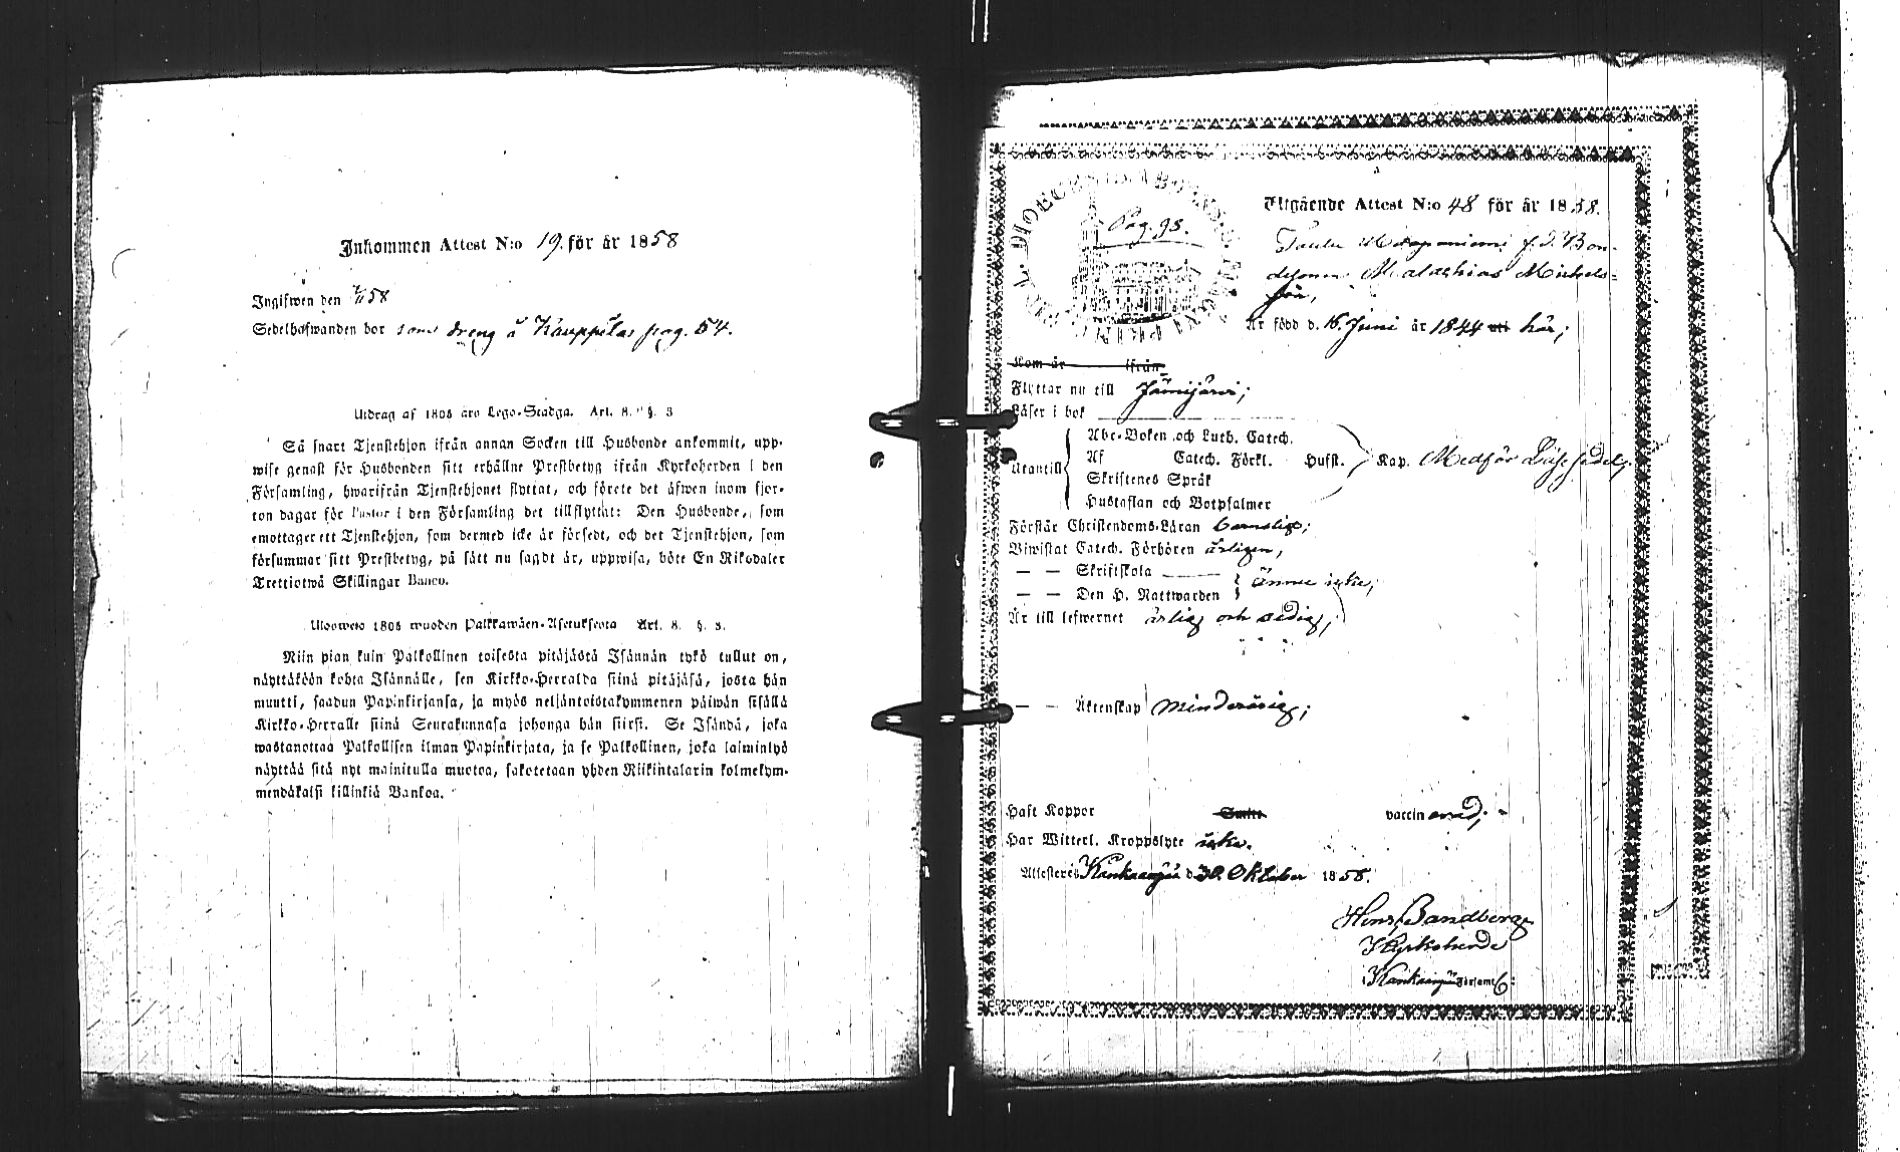 Inkommen Attest N:o 19. för år 1858
Ingifwen den 7/11 58
Sedelhafwanden bor som dreng å Kauppila pag. 54.
Utdrag af 1805 års Lego-Stadga. Art. 8. §. 3
Så snart Tjenstehjon ifrån annan Socken till Husbonde ankommit, upp-
wise genast för Husbonden sitt erhållne Prestbetyg ifrån Kyrkoherden i den
Församling, hwarifrån Tjenstehjonet flyttat, och förete det äfwen inom fjor-
ton dagar för Pastor i den Församling det tillflyttat: Den Husbonde, som
emottager ett Tjenstehjon, som dermed icke är försedt, och det Tjenstehjon, som
försummar sitt Prestbetyg, på sätt nu sagdt är, uppwisa, böte En Riksdaler
Trettiotwå Skillingar Banco.
Ulosweto 1805 wuoden Palkkawäen-Asetuksesta Art. 8. §. 3.
Niin pian kuin Palkollinen toisesta pitäjästä Isännän tykö tullut on,
näyttäköön kohta Isännälle, sen Kirkko-Herralda siinä pitäjäsä, josta hän
muutti, saadun Papinkirjansa, ja myös neljäntoistakymmenen päiwän sisällä
Kirkko-Herralle siinä Seurakunnasa johonga hän siirsi. Se Isändä, joka
wastanottaa Palkollisen ilman Papinkirjata, ja se Palkollinen, joka laimintyö
näyttää sitä nyt mainitulla muotoa, sakotetaan yhden Riikintalarin kolmekym-
mendäkaksi killinkiä Bankoa.
Utgående Attest N:o 48 för år 1858.
Pag. 98.
f. d. Bon-
desonen Malachias Michels-
son,
Är född d. 16. Juni år 1844 uti här;
Kom år ifrån
Flyttar nu till Jämijärvi;
Läser i bok
Utantill
Abc-Boken och Luth. Catech.
Af Catech. Förkl. Hufst. Kap. Medför Läsesedel;
Skriftenes Språk
Hustaflan och Botpsalmer
Förstår Christendoms-Läran barnsligt;
Biwistat Catech. Förhören årligen,
— — Skriftskola
— — Den H. Nattwarden ännu icke;
Är till lefwernet ärlig och sedig,
— — Äktenskap minderårig;
Haft Koppor vaccinerad;
Har Witterl. Kroppslyte icke.
Attesteres Kankaanpää d. 30. Oktober 1858.
Henr. Sandberg
Kyrkoherde
i Kankaanpää Församl: